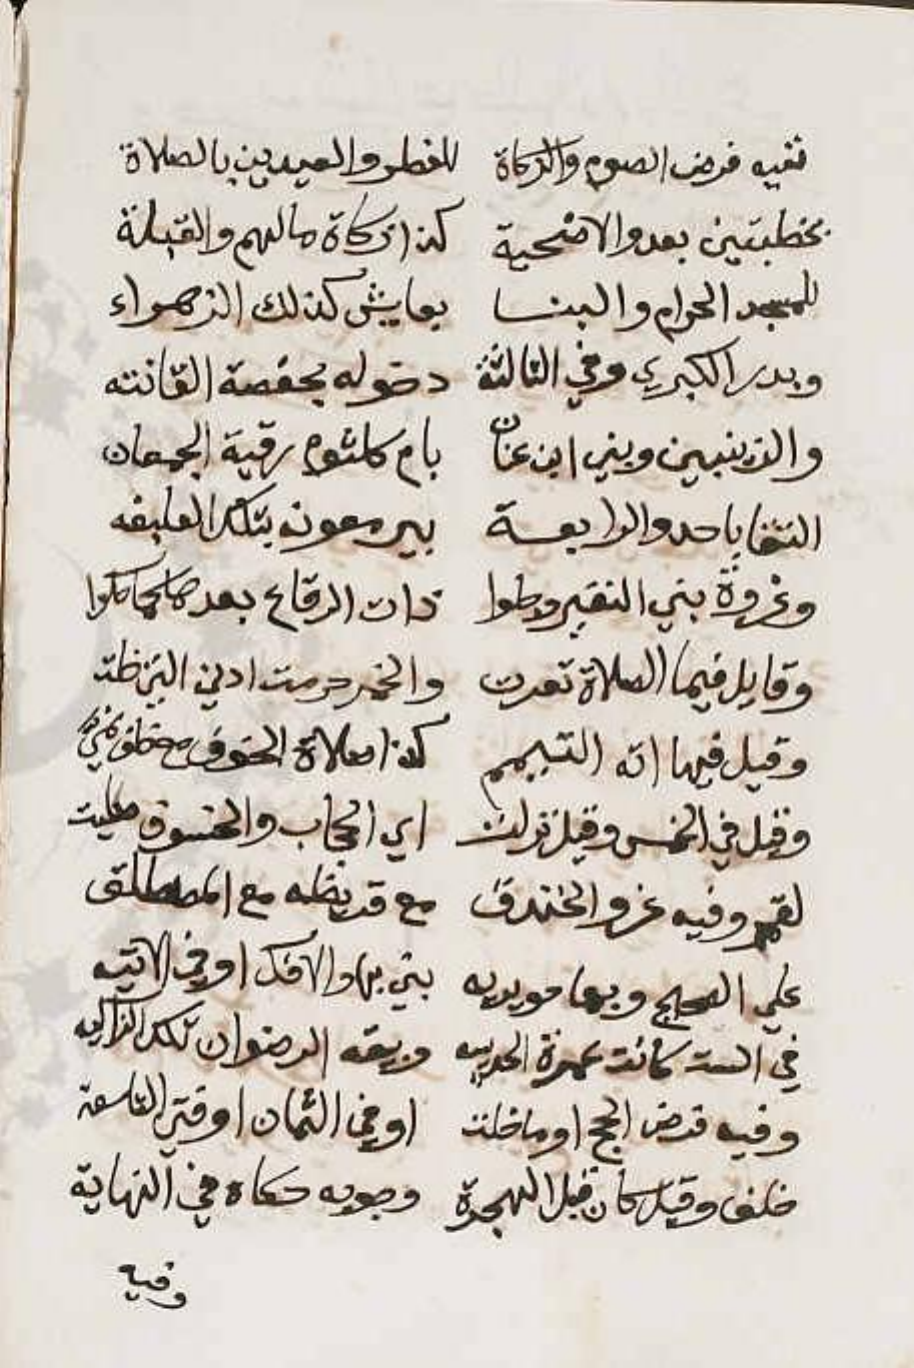 ففيه فرض الصوم والزكاة للفطر والعيدين بالصلاة
بخطبتين بعد والاضحية كذا زكاة مالهم والقبلة
للمسجد الحرام والبنا بعايش كذلك الزهراء
وبدر الكبري وفي الثالثة دخوله بحفصة القانته
والزينبين وبني ابن عفان بام كلثوم رقية الجمعان
التقا باحد والرابعة بير معونه بتلك
وغزوة بني النضير وجلوا ذات الرقاع بعدها
وقايل فيها الصلاة قصرت والخمر حرمت
وقيل فيها اية التيمم كذا صلاة الخوف مع
وقيل في الخمس وقيل نزلت اي الحجاب والخسوف صليت
لقمر وفيه غزو الخندق مع قريظه مع المصطلق
علي الصحيح وبها جويريه بني بها والافك او في الاتيه
في الست كانت عمرة الحديبيه وبيعه الرضوان تلك الزاكيه
وفيه فرض الحج او ما خلت او في الثمان او ففي التاسعة
خلف وقيل كان قبل الهجرة وجوبه حكاه في النهاية
وفيه